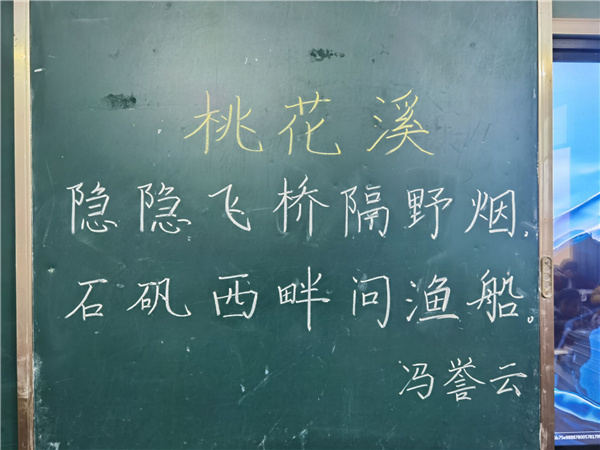 桃花溪
隐隐飞桥隔野烟,
石矾西畔问渔船。
冯誉云